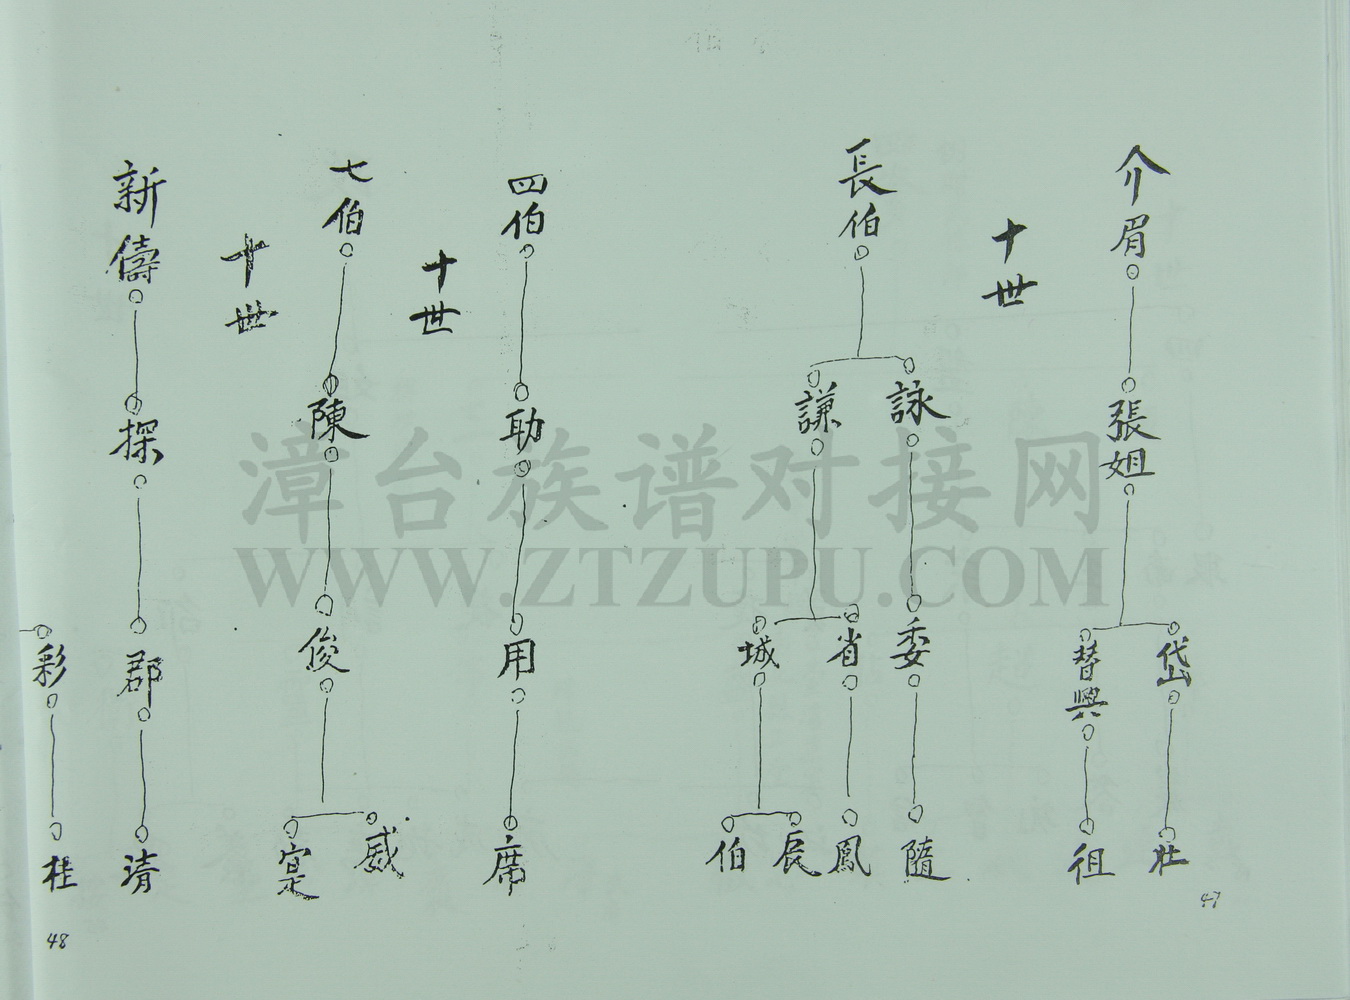 介眉
張姐
岱
壯
替興
徂
47
十世
長伯
詠
委
隨
謙
省
鳳
城
辰
伯
四伯
助
用
席
十世
七伯
陳
俊
威
寔
十世
新儔
探
郡
清
彩
桂
48
漳台族谱对接网
WWW.ZTZUPU.COM